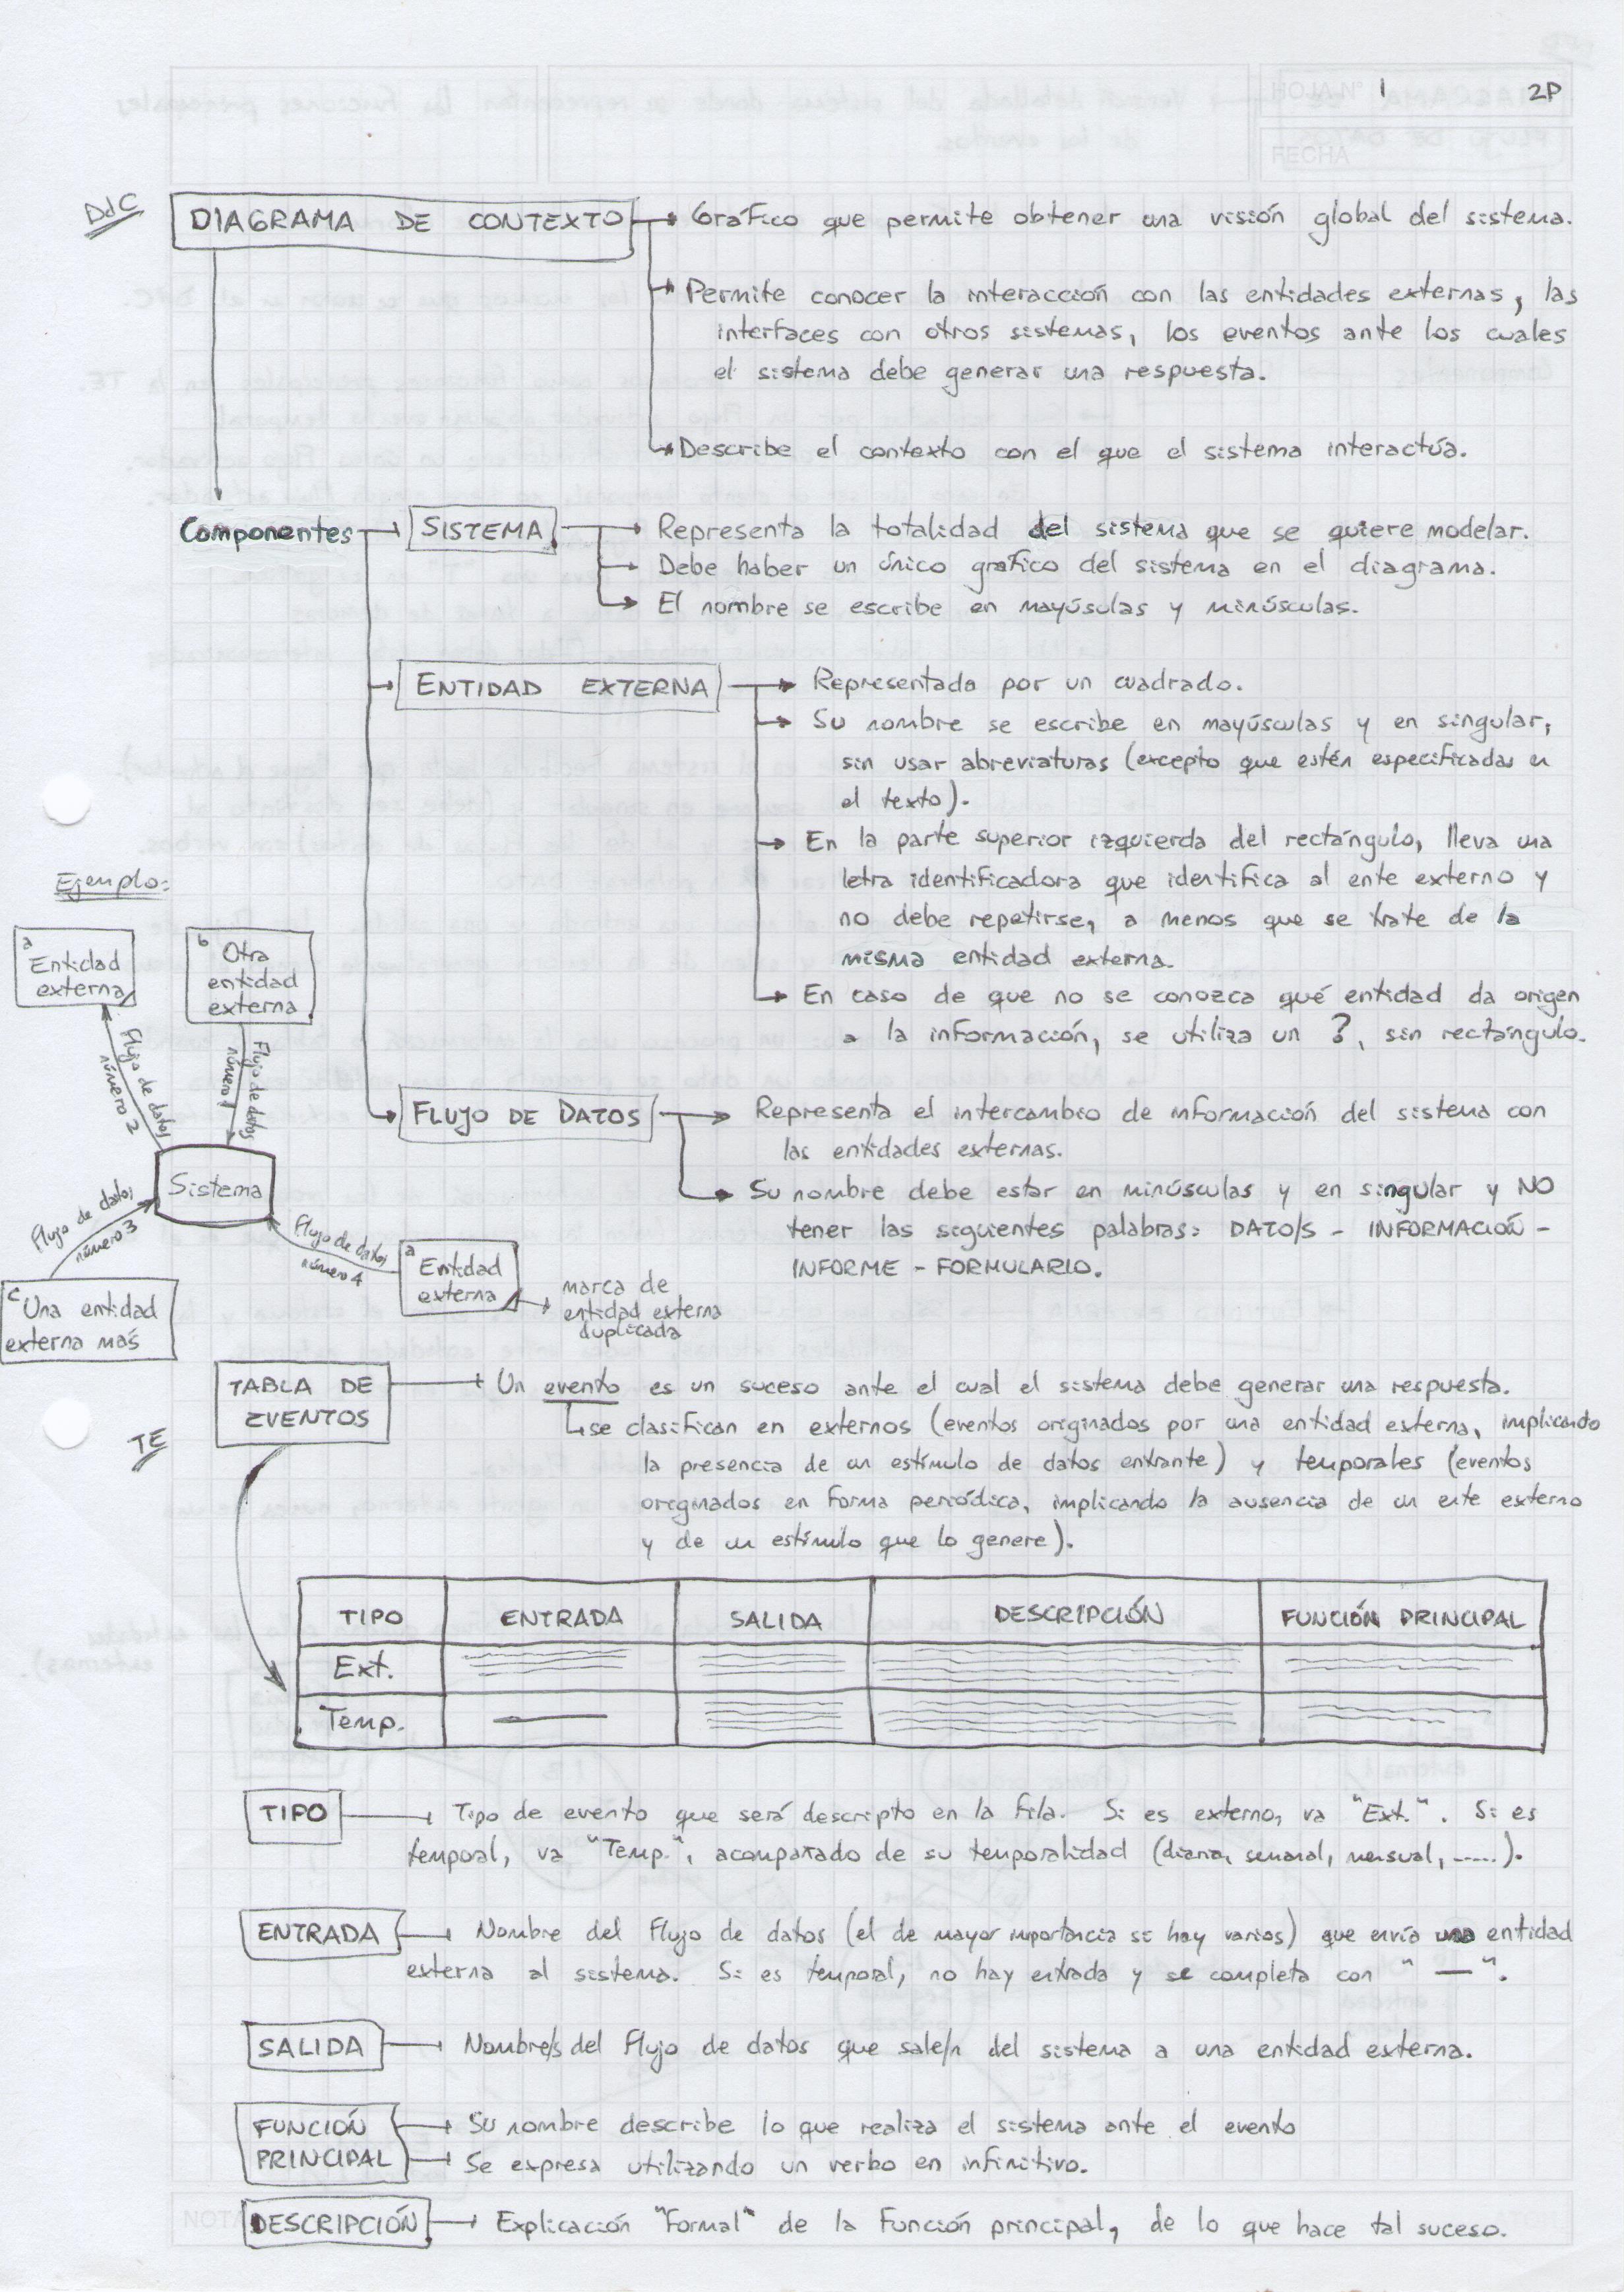 HOJA N° 1 2P
FECHA
DdC
DIAGRAMA DE CONTEXTO
Gráfico que permite obtener una visión global del sistema.
Permite conocer la interacción con las entidades externas, las
interfaces con otros sistemas, los eventos ante los cuales
el sistema debe generar una respuesta.
Describe el contexto con el que el sistema interactúa.
Componentes
SISTEMA
Representa la totalidad del sistema que se quiere modelar.
Debe haber un único gráfico del sistema en el diagrama.
El nombre se escribe en mayúsulas y minúsculas.
ENTIDAD EXTERNA
Representada por un cuadrado.
Su nombre se escribe en mayúsculas y en singular,
sin usar abreviaturas (excepto que estén especificadas en
el texto).
En la parte superior izquierda del rectángulo, lleva una
letra identificadora que identifica al ente externo y
no debe repetirse, a menos que se trate de la
misma entidad externa.
En caso de que no se conozca qué entidad da origen
a la información, se utiliza un ?, sin rectángulo.
FLUJO DE DATOS
Representa el intercambio de información del sistema con
las entidades externas.
Su nombre debe estar en minúsculas y en singular y NO
tener las siguientes palabras: DATO/S - INFORMACIÓN -
INFORME - FORMULARIO.
Ejemplo:
a
Entidad
externa
b
Otra
entidad
externa
Flujo de datos
número 2
Flujo de datos
número 1
Sistema
Flujo de datos
número 3
Flujo de datos
número 4
c
Una entidad
externa más
a
Entidad
externa
marca de
entidad externa
duplicada
TE
TABLA DE
EVENTOS
Un evento es un suceso ante el cual el sistema debe generar una respuesta.
se clasifican en externos (eventos originados por una entidad externa, implicando
la presencia de un estímulo de datos entrante) y temporales (eventos
originados en forma periódica, implicando la ausencia de un ente externo
y de un estímulo que lo genere).
TIPO ENTRADA SALIDA DESCRIPCIÓN FUNCIÓN PRINCIPAL
Ext.
Temp. —
TIPO
Tipo de evento que será descripto en la fila. Si es externo, va "Ext.". Si es
temporal, va "Temp.", acompañado de su temporalidad (diaria, semanal, mensual, .....).
ENTRADA
Nombre del flujo de datos (el de mayor importancia si hay varios) que envía una entidad
externa al sistema. Si es temporal, no hay entrada y se completa con "—".
SALIDA
Nombre/s del flujo de datos que sale/n del sistema a una entidad externa.
FUNCIÓN
PRINCIPAL
Su nombre describe lo que realiza el sistema ante el evento
Se expresa utilizando un verbo en infinitivo.
NOT
DESCRIPCIÓN
Explicación "formal" de la función principal, de lo que hace tal suceso.